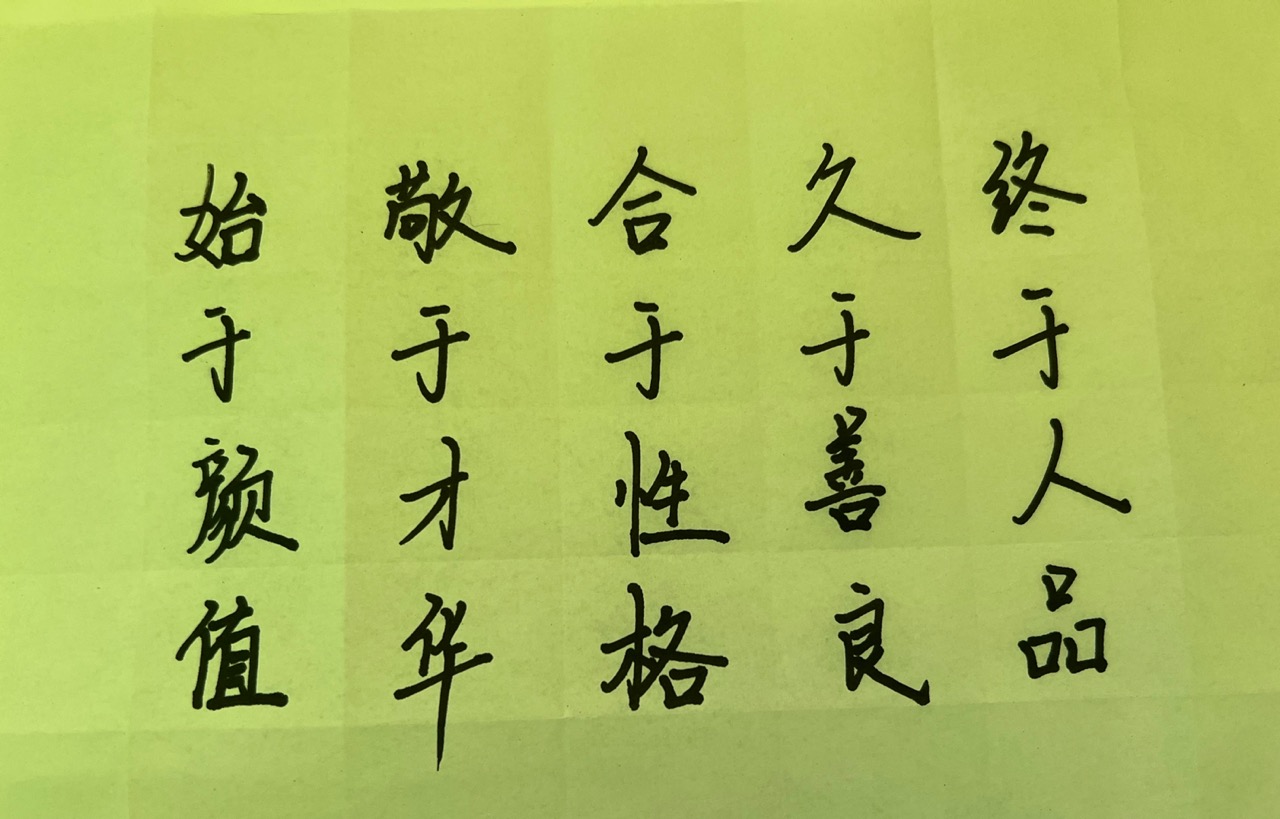 始于颜值
敬于才华
合于性格
久于善良
终于人品